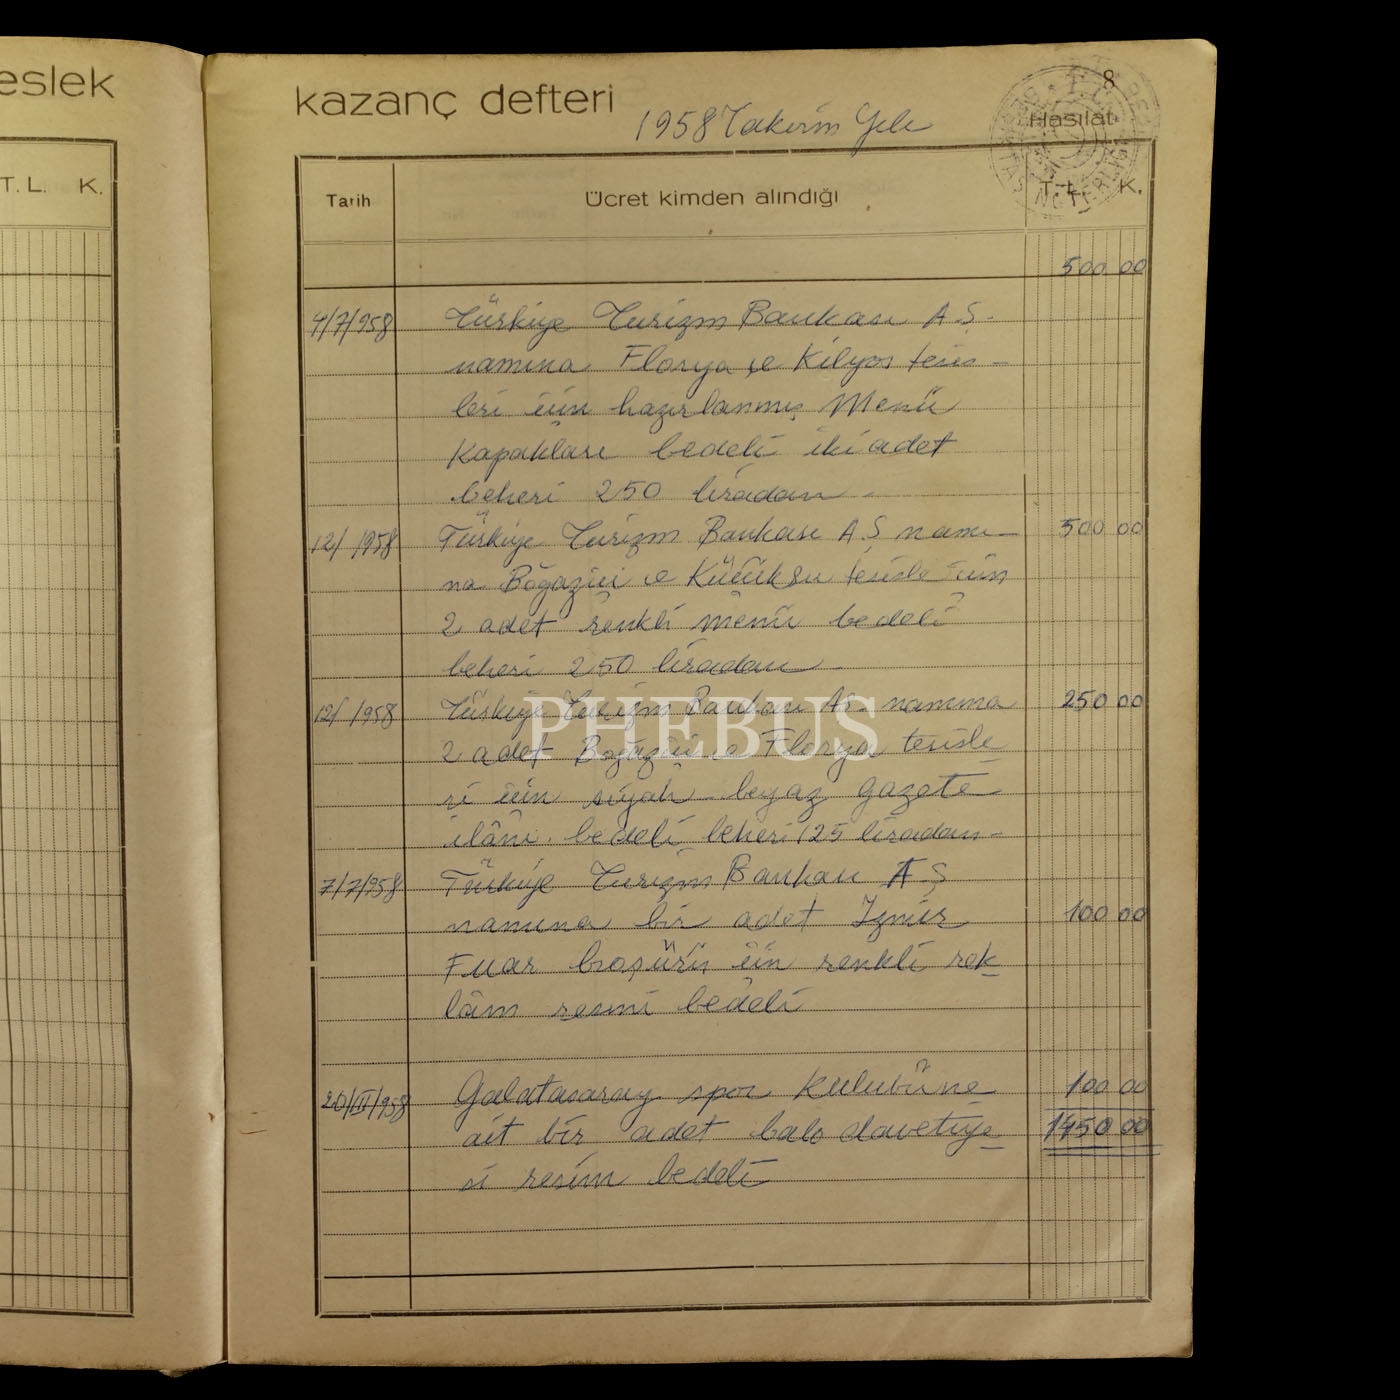 eslek
T. L. K.
kazanç defteri
8
1958 Takvim Yılı
Hasılat
Tarih Ücret kimden alındığı T. L. K.
500 00
4/7/958 Türkiye Turizm Bankası A.Ş.
namına Florya ve Kilyos tesis-
leri için hazırlanmış Menü
Kapakları bedeli iki adet
beheri 250 liradan -
12/ /958 Türkiye Turizm Bankası A.Ş namı- 500 00
na Boğaziçi ve Küçüksu tesisle için
2 adet renkli menü bedeli
beheri 250 liradan -
12/ /958 Türkiye Turizm Bankası AŞ. namına 250 00
2 adet Boğaziçi ve Florya tesisle
ri için siyah beyaz gazete
ilânı bedeli beheri 125 liradan-
7/7/958 Türkiye Turizm Bankası A Ş
namına bir adet Izmir 100 00
Fuar broşürü için renkli rek-
lâm resmi bedeli
20/III/958 Galatasaray spor kulubüne 100 00
ait bir adet balo davetiye- 1450 00
si resim bedeli
PHEBUS